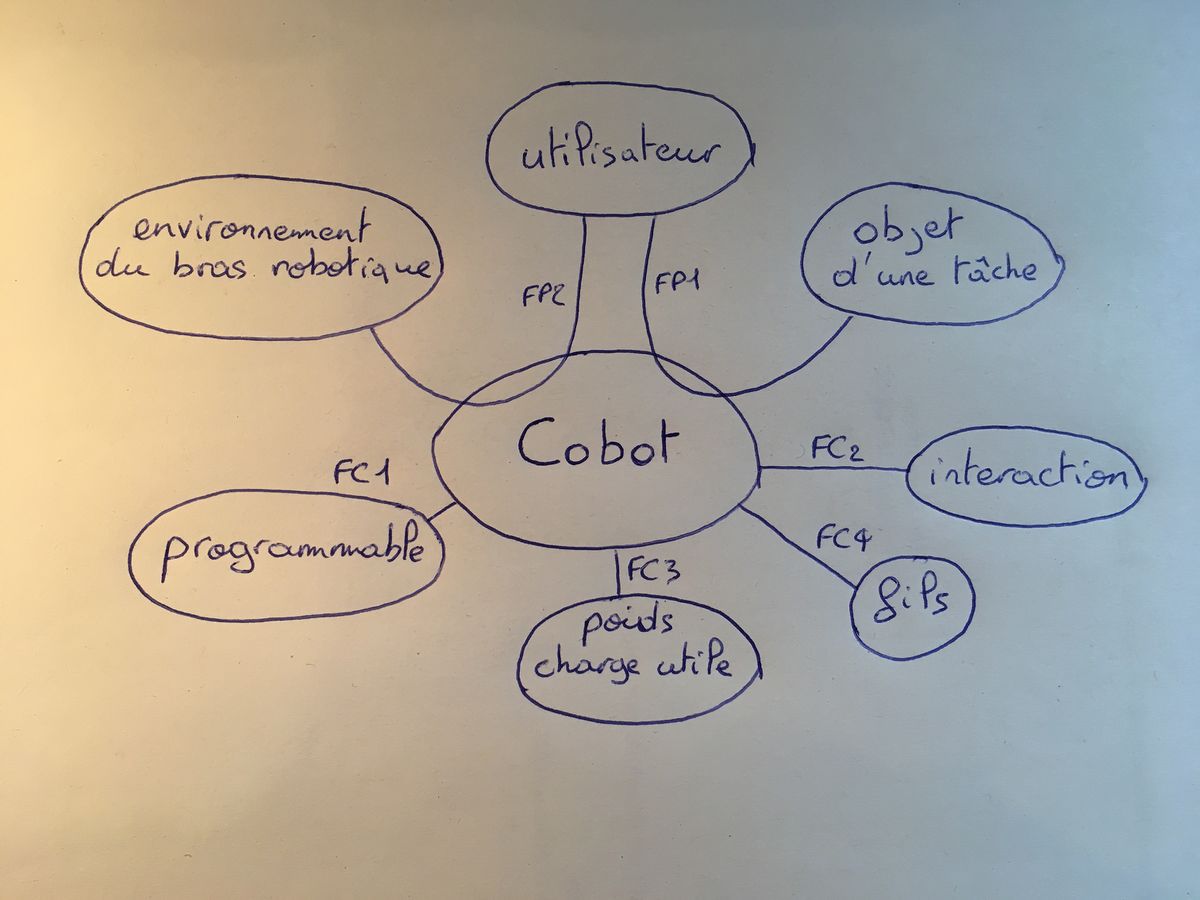 utilisateur
environnement
du bras robotique
objet
d'une tâche
FP2
FP1
Cobot
FC1
FC2
interaction
programmable
FC4
FC3
fils
poids
charge utile